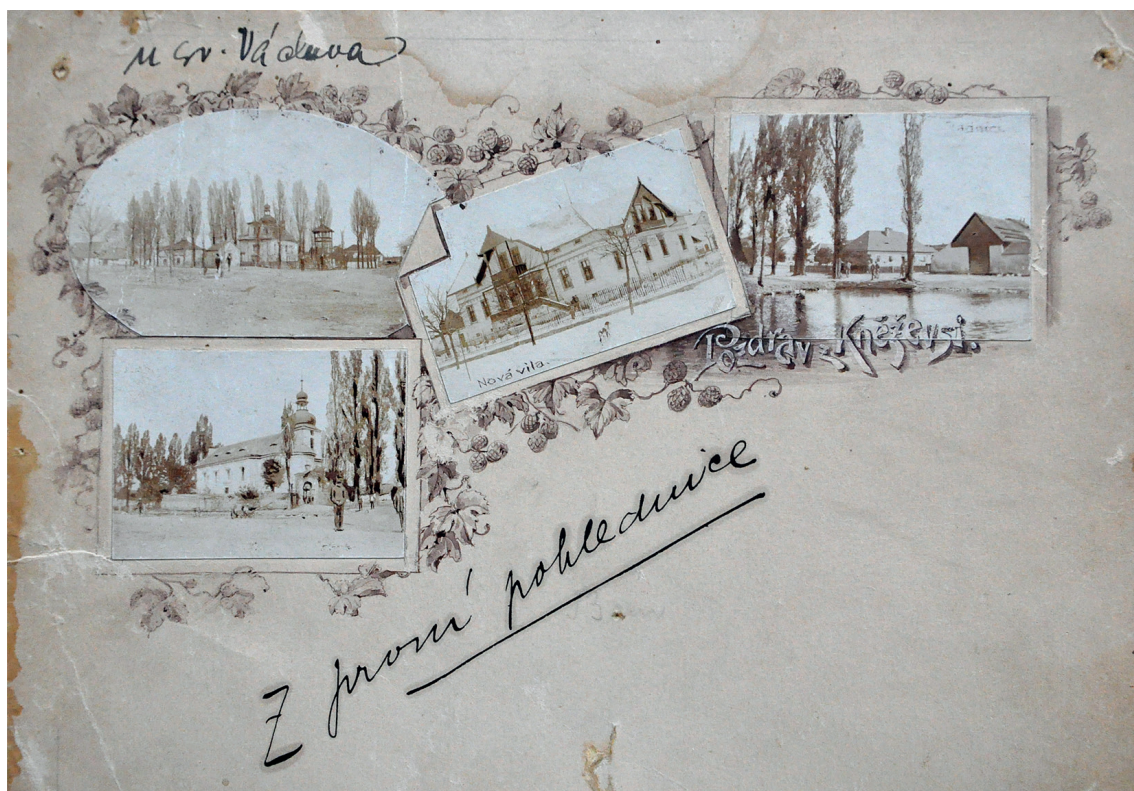 u sv. Václava
Nová vila.
Pozdrav z Kněževsi.
Z první pohlednice